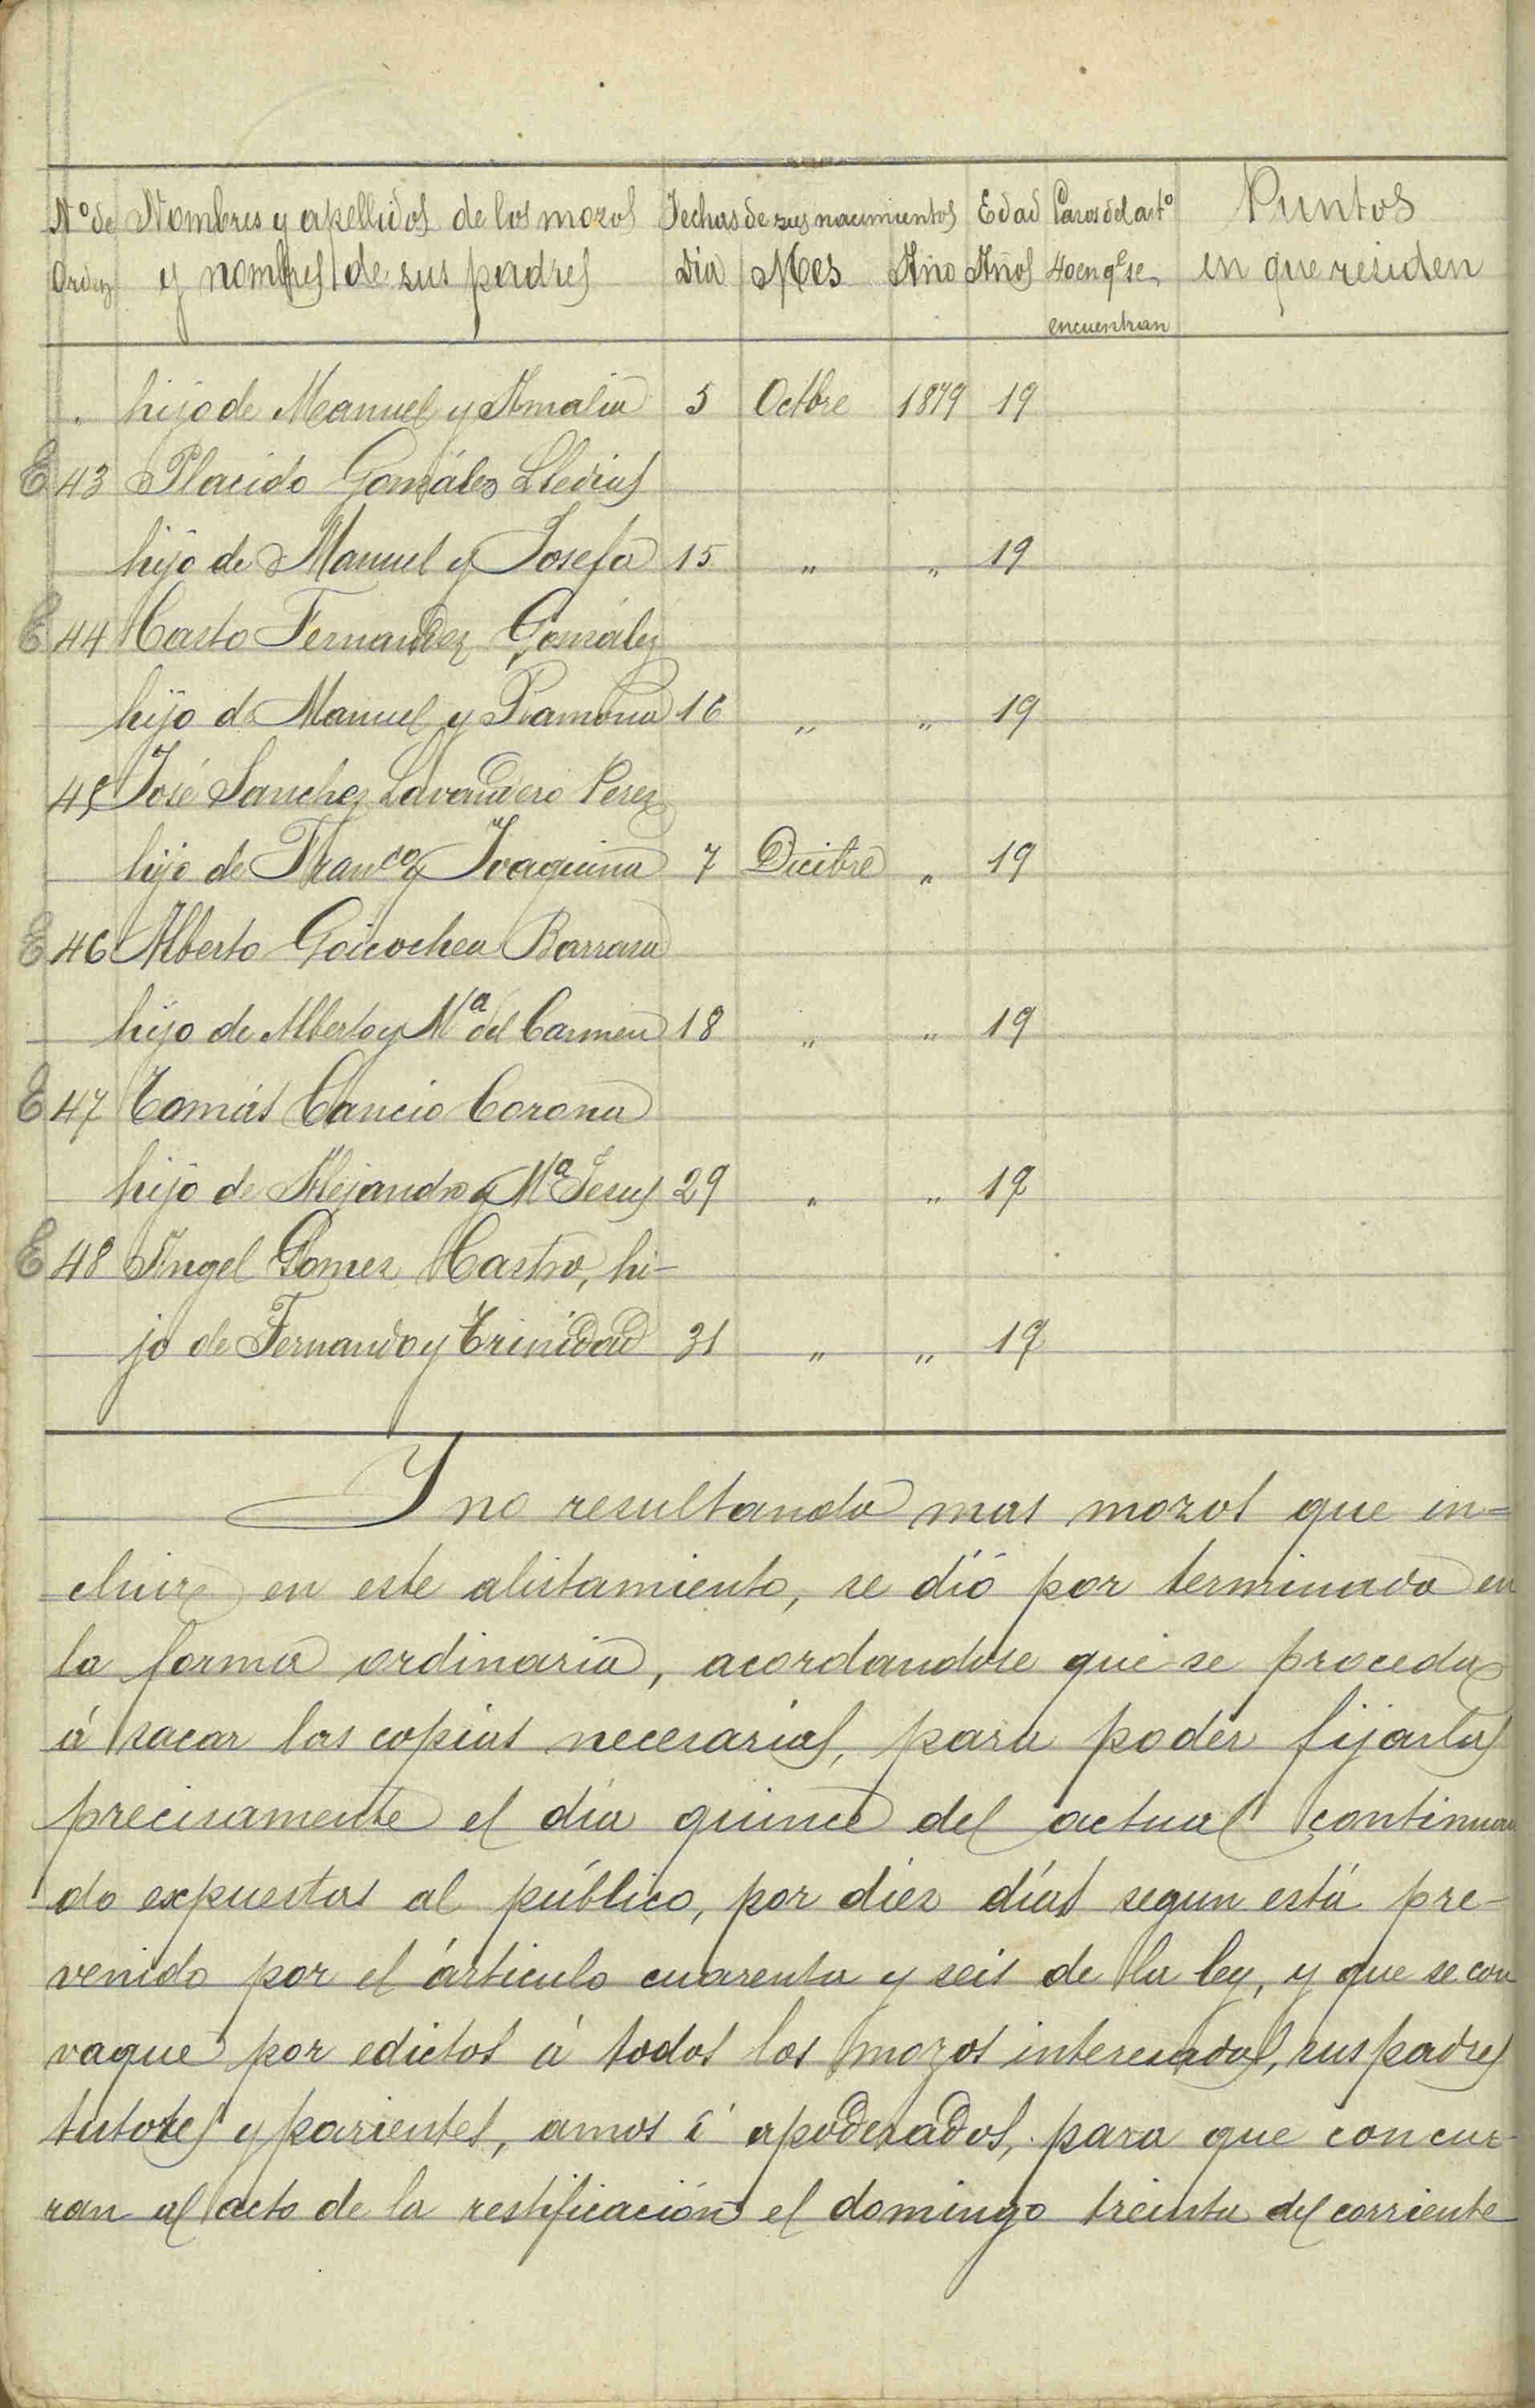 Nº de Nombres y apellidos de los mozos Fechas de sus nacimientos Edad Casos del artº Puntos
Orden y nombres de sus padres Dia Mes Año Años 40 en qe se en que residen
encuentran
" hijo de Manuel y Amalia 5 Octbre 1879 19
E 43 Placido González Lledias
hijo de Manuel y Josefa 15 " " 19
E 44 Casto Fernandez González
hijo de Manuel y Ramona 16 " " 19
45 José Sanchez Lavandero Perez
hijo de Franco y Joaquina 7 Dicibre " 19
E 46 Alberto Goicochea Barrasa
hijo de Alberto y Mª del Carmen 18 " " 19
E 47 Tomás Cancio Corona
hijo de Alejandro y Mª Jesus 29 " " 19
E 48 Angel Gomez Castro, hi-
jo de Fernando y Trinidad 31 " " 19
Y no resultando mas mozos que in=
=cluir en este alistamiento, se dió por terminado en
la forma ordinaria, acordandose que se proceda
á sacar las copias necesarias, para poder fijarlas
precisamente el día quince del actual continuan
do expuestas al público, por diez días segun está pre-
venido por el árticulo cuarenta y seis de la ley, y que se con
voque por edictos á todos los mozos interesados, sus padres
tutores y parientes, amos é apoderados, para que concur-
ran al acto de la restificación el domingo treinta del corriente